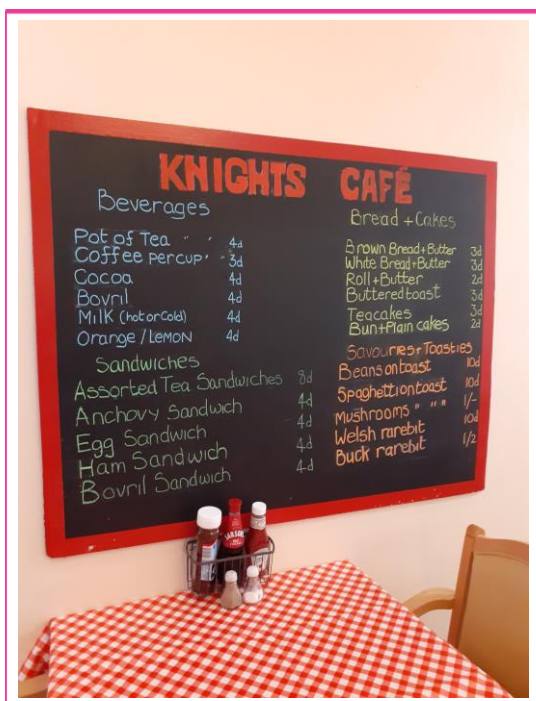 KNIGHTS CAFÉ
Beverages
Pot of Tea " " 4d
Coffee per cup " " 3d
Cocoa 4d
Bovril 4d
Milk (hot or cold) 4d
Orange / Lemon 4d
Sandwiches
Assorted Tea Sandwiches 8d
Anchovy Sandwich 4d
Egg Sandwich 4d
Ham Sandwich 4d
Bovril Sandwich 4d
Bread + Cakes
Brown Bread + Butter 3d
White Bread + Butter 3d
Roll + Butter 2d
Buttered toast 3d
Teacakes 3d
Bun + Plain cakes 2d
Savouries + Toasties
Beans on toast 10d
Spaghetti on toast 10d
Mushrooms " " " 1/-
Welsh rarebit 10d
Buck rarebit 1/2
SARSON'S